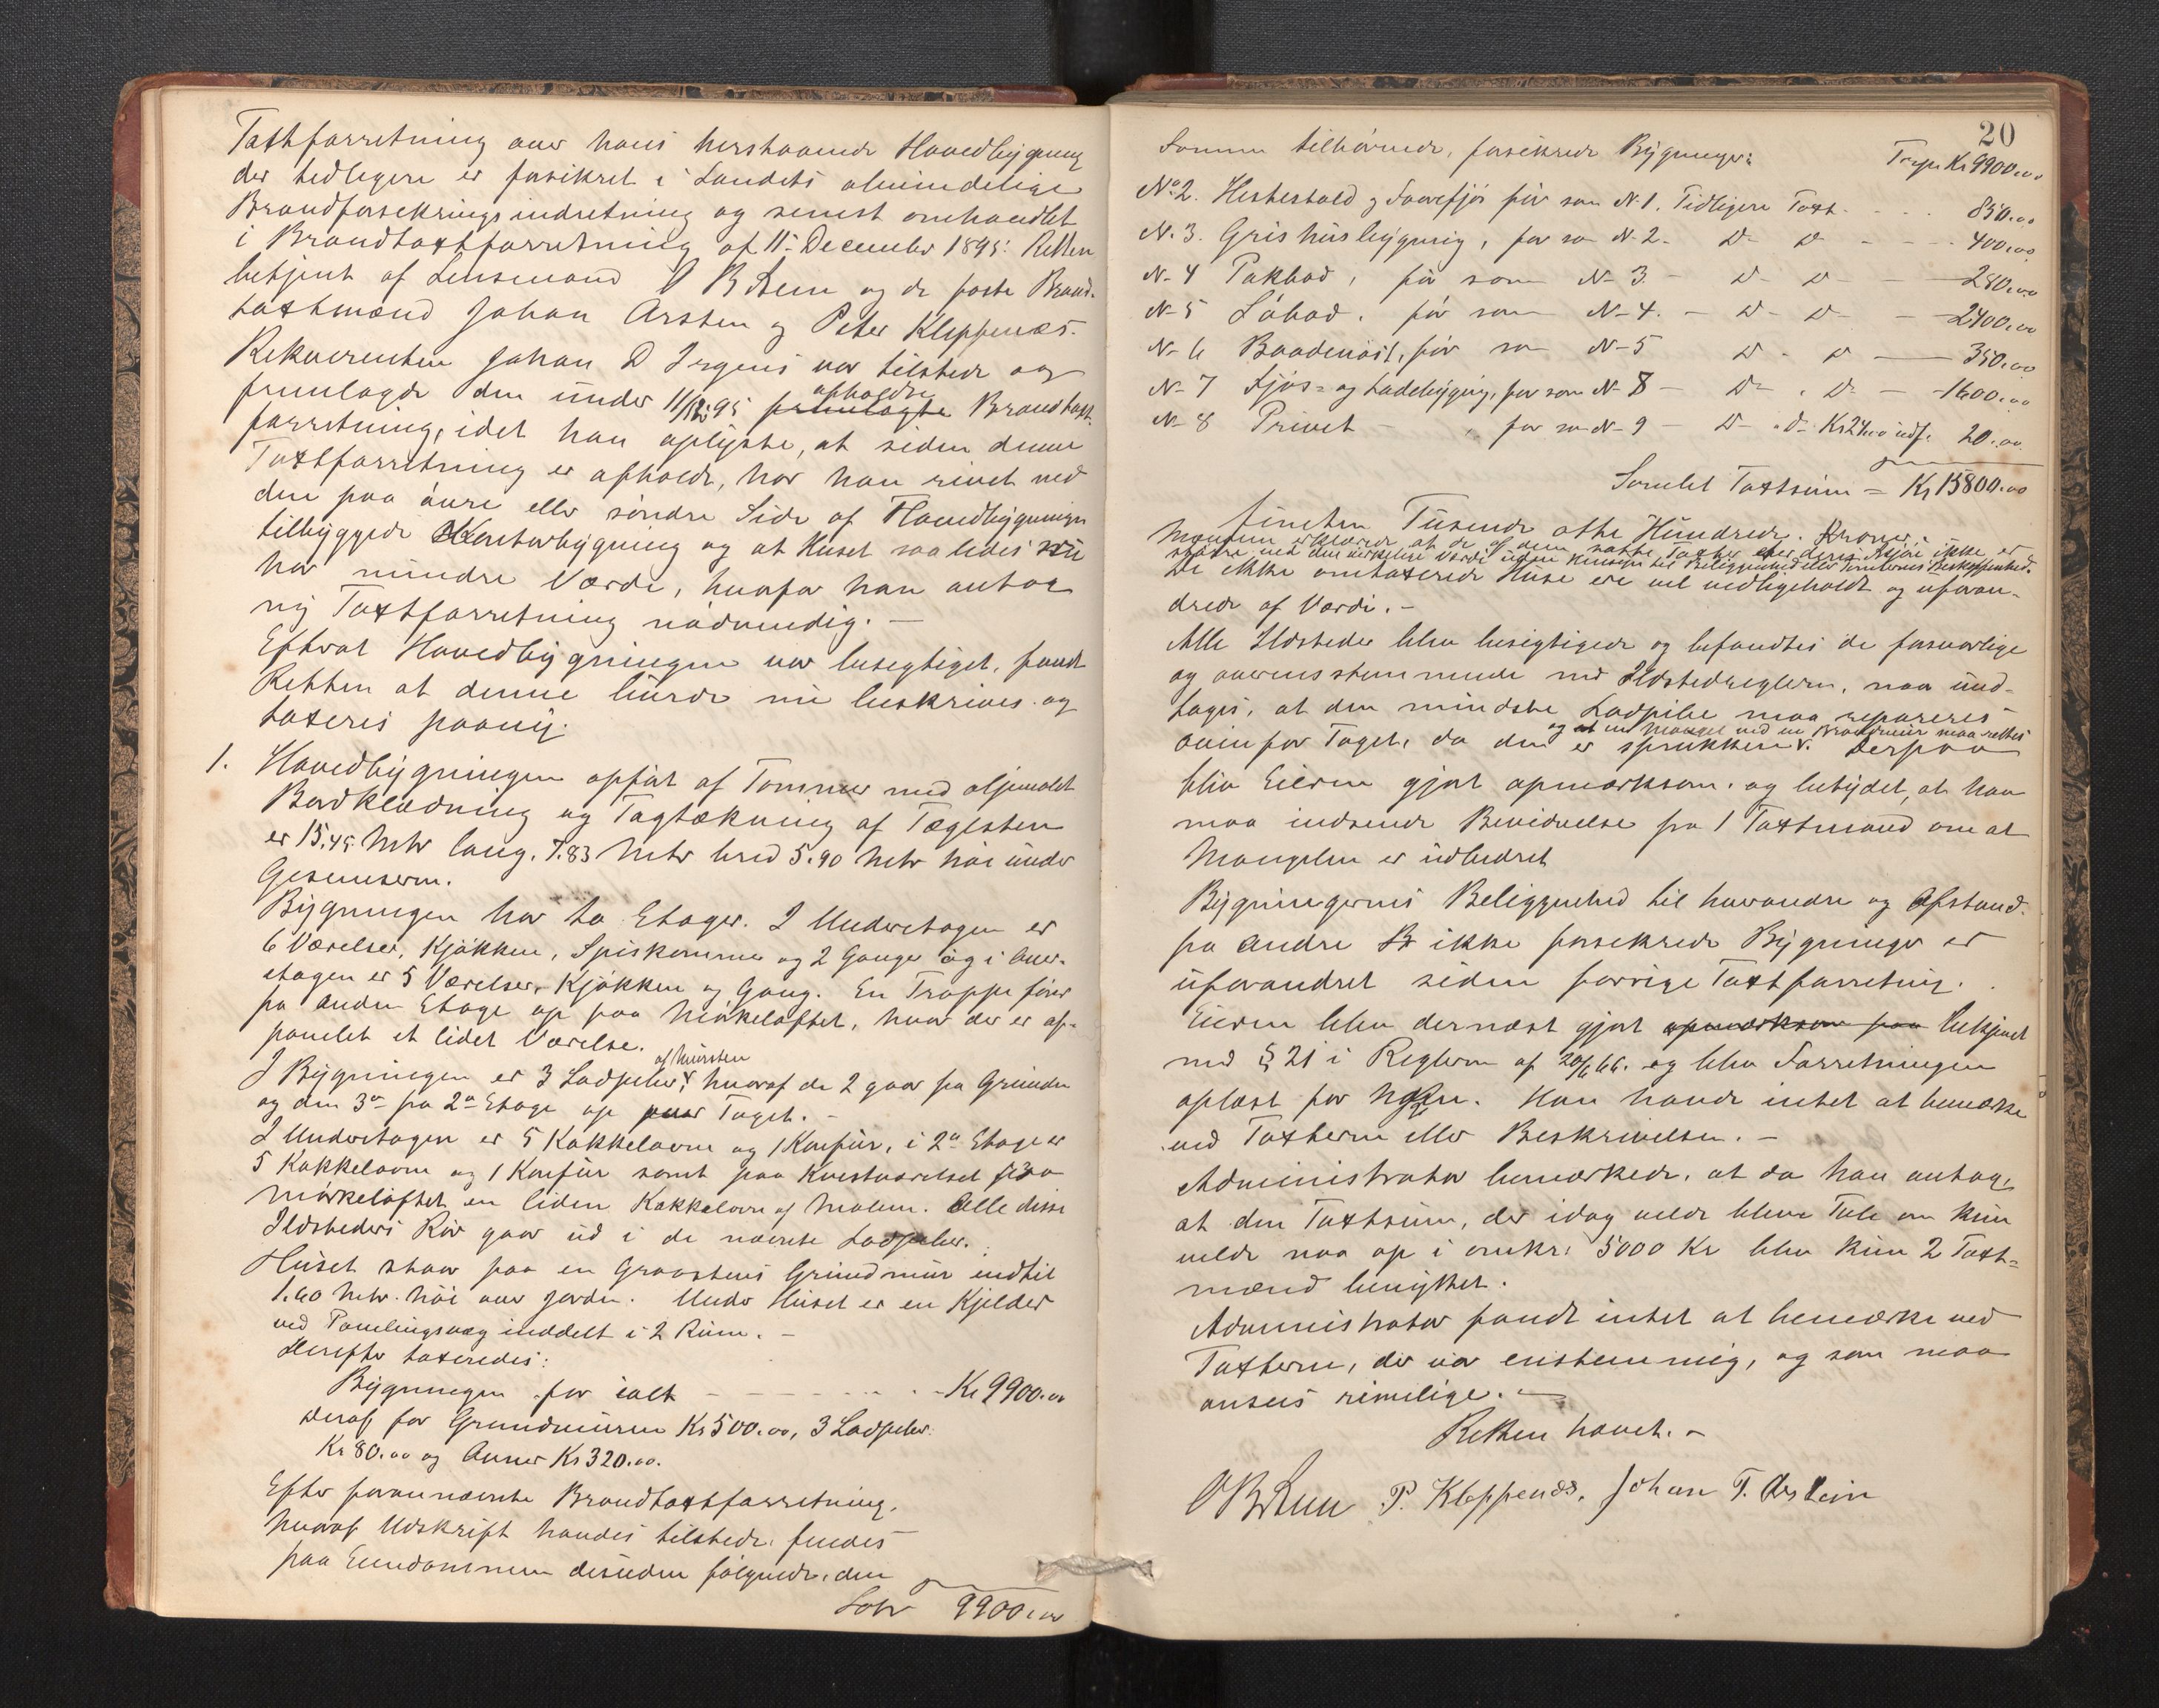 Taxtforretning over hans herstaaende Hovedbygning
der tidligere er forsikret i Landets almindelige
Brandforsikringsindretning og senest omhandlet
i Brandtaxtforretning af 11- December 1895. Retten
betjent af Lensmand O B Lem og de faste Brand-
taxtmænd Johan Arsten og Peter Kleppenæs.
Rekvirenten Johan D Irgens var tilstede og
fremlagde den under 11/12 95 afholdte fremlagte Brandtaxt-
forretning, idet han oplyste, at siden denne
Taxtforretning er afholdt, har han revet ned
den paa øvre eller søndre Side af Hovedbygningen
tilbyggede Kontorbygning og at Huset saaledes nu
har mindre Værdi, hvorfor han antog
ny Taxtforretning nødvendig. —
Efterat Hovedbygningen var besigtiget, fandt
Retten at denne burde nu beskrives og
taxeres paany.
1. Hovedbygningen opført af Tømmer med oljemalet
Bordklædning og Tagtækning af Tæglsten
er 15.45 Mtr lang, 7.83 Mtr bred 5.90 Mtr høi under
Gesimserne.
Bygningen har to Etager. I Underetagen er
6 Værelser, Kjøkken, Spiskammer og 2 Gange og i Over-
etagen er 5 Værelser, Kjøkken og Gang. En Trappe fører
fra anden Etage op paa Mørkeloftet, hvor der er af-
panelet et lidet Værelse.
I Bygningen er 3 Ladpiber, af Mursten hvoraf de 2 gaar fra Grunden
og den 3de fra 2den Etage op over Taget. —
I Underetagen er 5 Kakkelovne og 1 Komfur, i 2den Etage er
5 Kakkelovne og 1 Komfur samt paa Kvistværelset paa
Mørkeloftet en liden Kakkelovn af Malm. Alle disse
Ildsteders Rør gaar ud i de nævnte Ladpiber.
Huset staar paa en Graastens Grundmur indtil
1.60 Mtr. høi over Jorden. Under Huset er en Kjelder
ved Tømlingsvæg inddelt i 2 Rum. —
Derefter taxeredes:
Bygningen for ialt - - - - - - Kr 9900.00
deraf for Grundmuren Kr 500.00, 3 Ladpiber
Kr 80.00 og Ovner Kr 320.00.
Efter forannævnte Brandtaxtforretning,
hvoraf Udskrift havdes tilstede, findes
paa Eiendommen desuden følgende, den
Latr 9900.00
20
Samme tilhørende, forsikrede Bygninger: Trspr Kr 9900.00
No 2. Hestestald og Faarefjøs før som N 1. Tidligere Taxt - - - 850.00
N. 3. Grishusbygning, før som N- 2 - D- D - - - 400.00
N- 4 Pakbod, før som N- 3 - D- D- - 280.00
N- 5 Løbod, før som N- 4. - D- D- - 2400.00
N- 6 Baadenøst, før som N- 5 D- D — 350.00
N- 7 Fjøs- og Ladebygning, før som N- 8 - D- D- - 1600.00
N- 8 Privet - , før som N- 9 - D- D- Kr 24.00 udf. 20.00
Samlet Taxtsum = Kr 15800.00
femten Tusende otte Hundrede Kroner.
Mændene erklærede at de af dem satte Taxter efter deres Skjøn ikke er
større end den virkelige Værdi uden Hensyn til Beliggenhed eller Tomternes Beskaffenhed.
De ikke omtaxerede Huse ere vel vedligeholdt og uforan-
drede af Værdi. —
Alle Ildsteder blev besigtigede og befandtes de forsvarlige
og overensstemmende med Ildstedreglerne, naa und-
tages, at den mindste Ladpibe maa repareres
ovenfor Taget, da den er sprukken og at en Mangel ved en Brandmur maa rettes. Derpaa
blev Eieren gjort opmærksom, og betydet, at han
maa indsende Bevidnelse fra 1 Taxtmand om at
Mangelen er udbedret
Bygningernes Beliggenhed til hverandre og Afstand
fra andre B ikke forsikrede Bygninger er
uforandret siden forrige Taxtforretning.
Eieren blev dernæst gjort opmærksom paa bekjent
med § 21 i Reglerne af 20/6 66. og blev Forretningen
oplæst for ham. Han havde intet at bemærke
ved Taxterne eller Beskrivelsen. —
Administrator bemærkede, at da han antog,
at den Taxtsum, der idag vilde blive Tale om kun
vilde naa op i omkr. 5000 Kr blev kun 2 Taxt-
mænd benyttet.
Administrator fandt intet at bemærke ved
Taxterne, der var enstemmig, og som maa
ansees rimelige. —
Retten hævet. —
O B Lem P. Kleppenæs, Johan T. Arstein